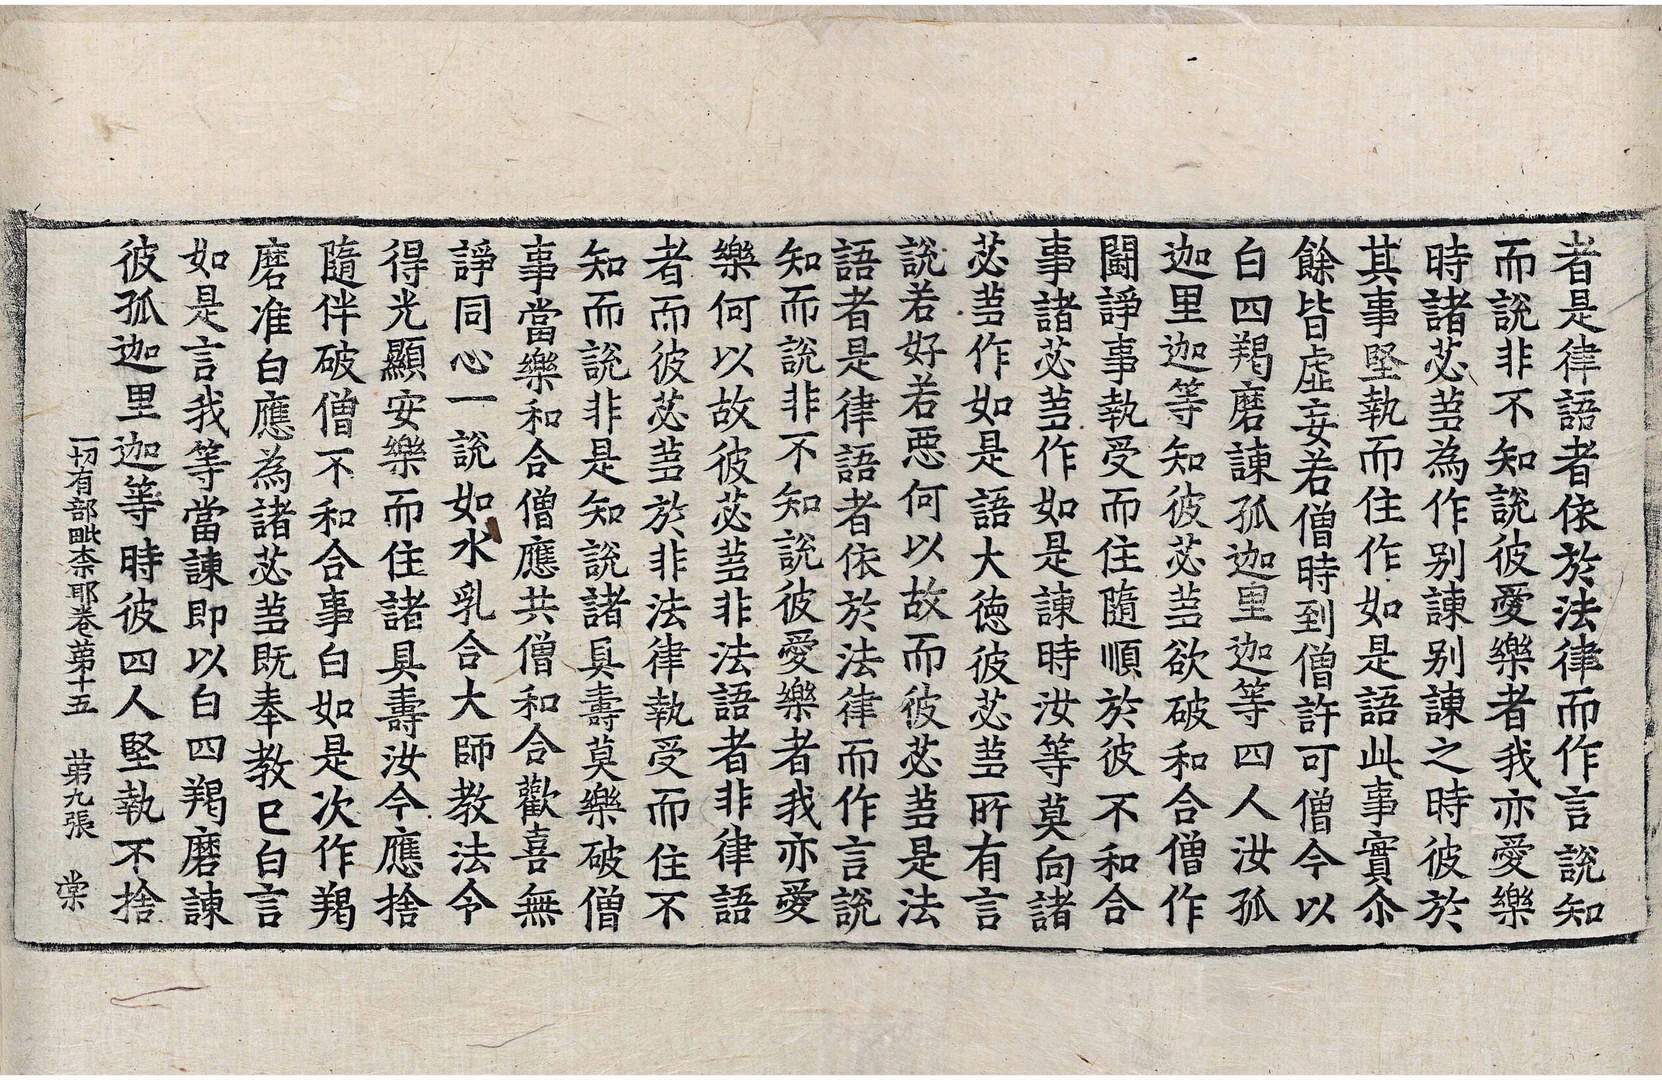 者是律語者依於法律而作言說知
而說非不知說彼愛樂者我亦愛樂
時諸苾蒭為作別諫別諫之時彼於
其事堅執而住作如是語此事實尒
餘皆虛妄若僧時到僧許可僧今以
白四羯磨諫孤迦里迦等四人汝孤
迦里迦等知彼苾蒭欲破和合僧作
鬪諍事執受而住隨順於彼不和合
事諸苾蒭作如是諫時汝等莫向諸
苾蒭作如是語大德彼苾蒭所有言
說若好若惡何以故而彼苾蒭是法
語者是律語者依於法律而作言說
知而說非不知說彼愛樂者我亦愛
樂何以故彼苾蒭非法語者非律語
者而彼苾蒭於非法律執受而住不
知而說非是知說諸具壽莫樂破僧
事當樂和合僧應共僧和合歡喜無
諍同心一說如水乳合大師教法令
得光顯安樂而住諸具壽汝今應捨
隨伴破僧不和合事白如是次作羯
磨准白應為諸苾蒭既奉教已白言
如是言我等當諫即以白四羯磨諫
彼孤迦里迦等時彼四人堅執不捨
一切有部毗柰耶卷第十五　第九張　棠